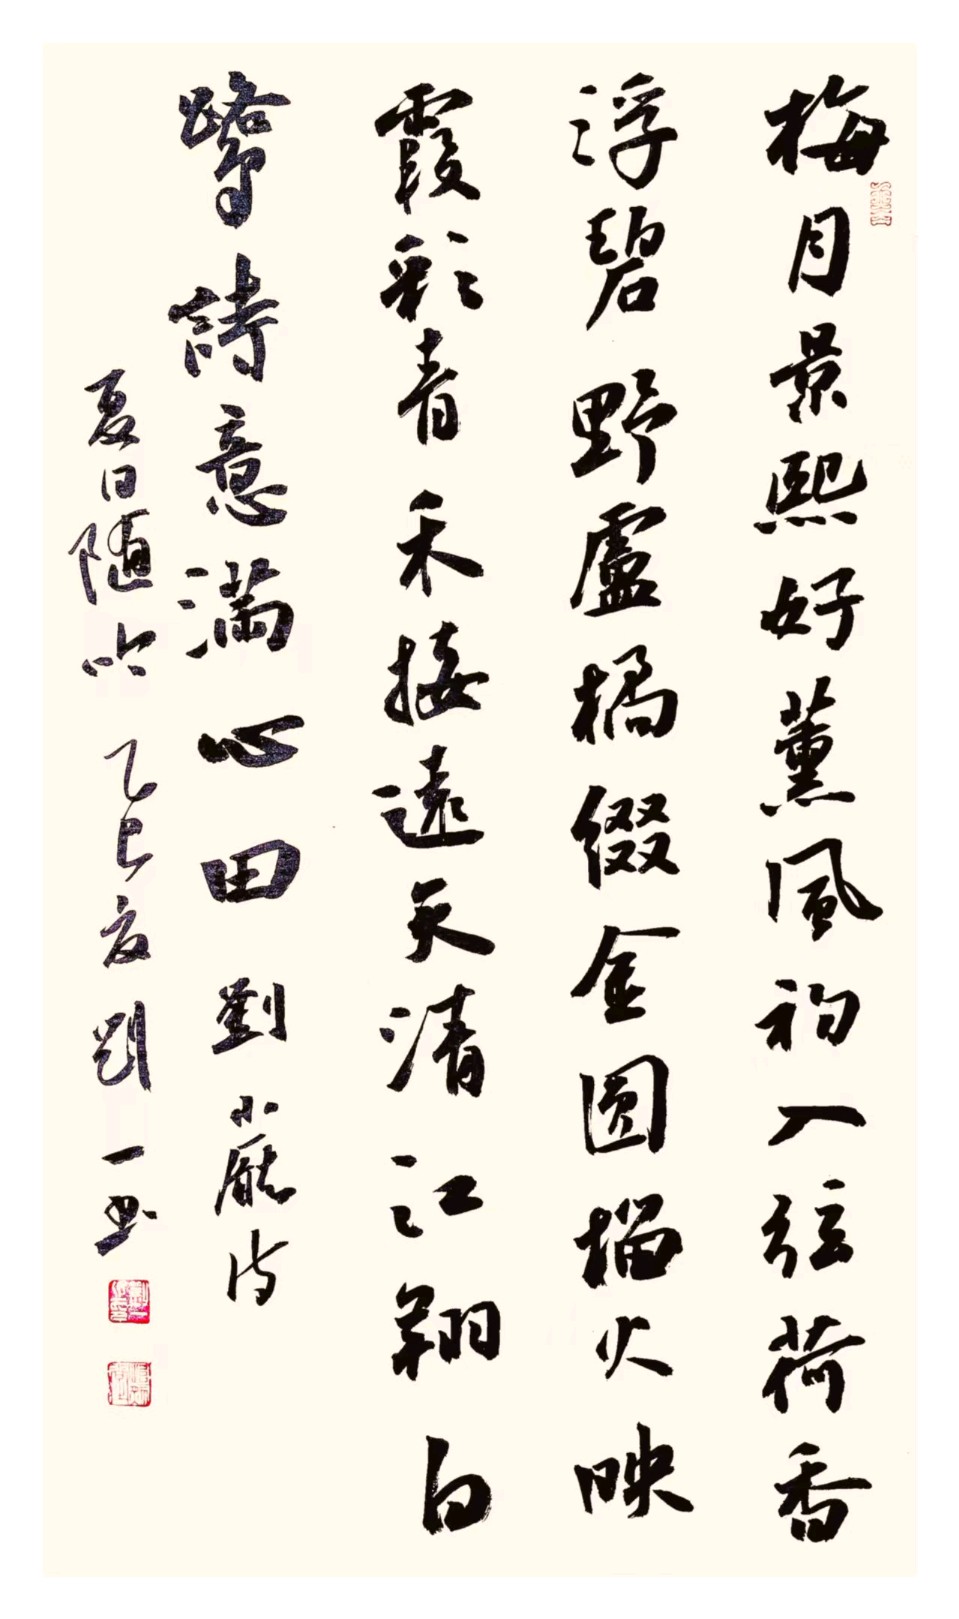 梅月景熙好薰風初入弦荷香
浮碧野盧橘綴金圓榴火映
霞彩青禾接遠天清江翔白
鷺詩意滿心田劉小龐诗
夏日随吟 乙巳夏劉一書